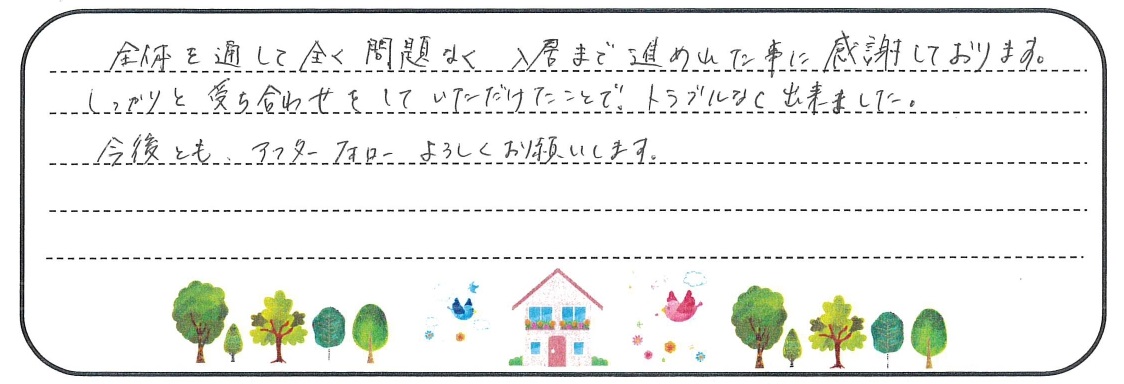 全体を通して全く問題なく入居まで進めれた事に感謝しております。
しっかりと受ち合わせをしていただけたことで、トラブルなく出来ました。
今後とも、アフターフォローよろしくお願いします。